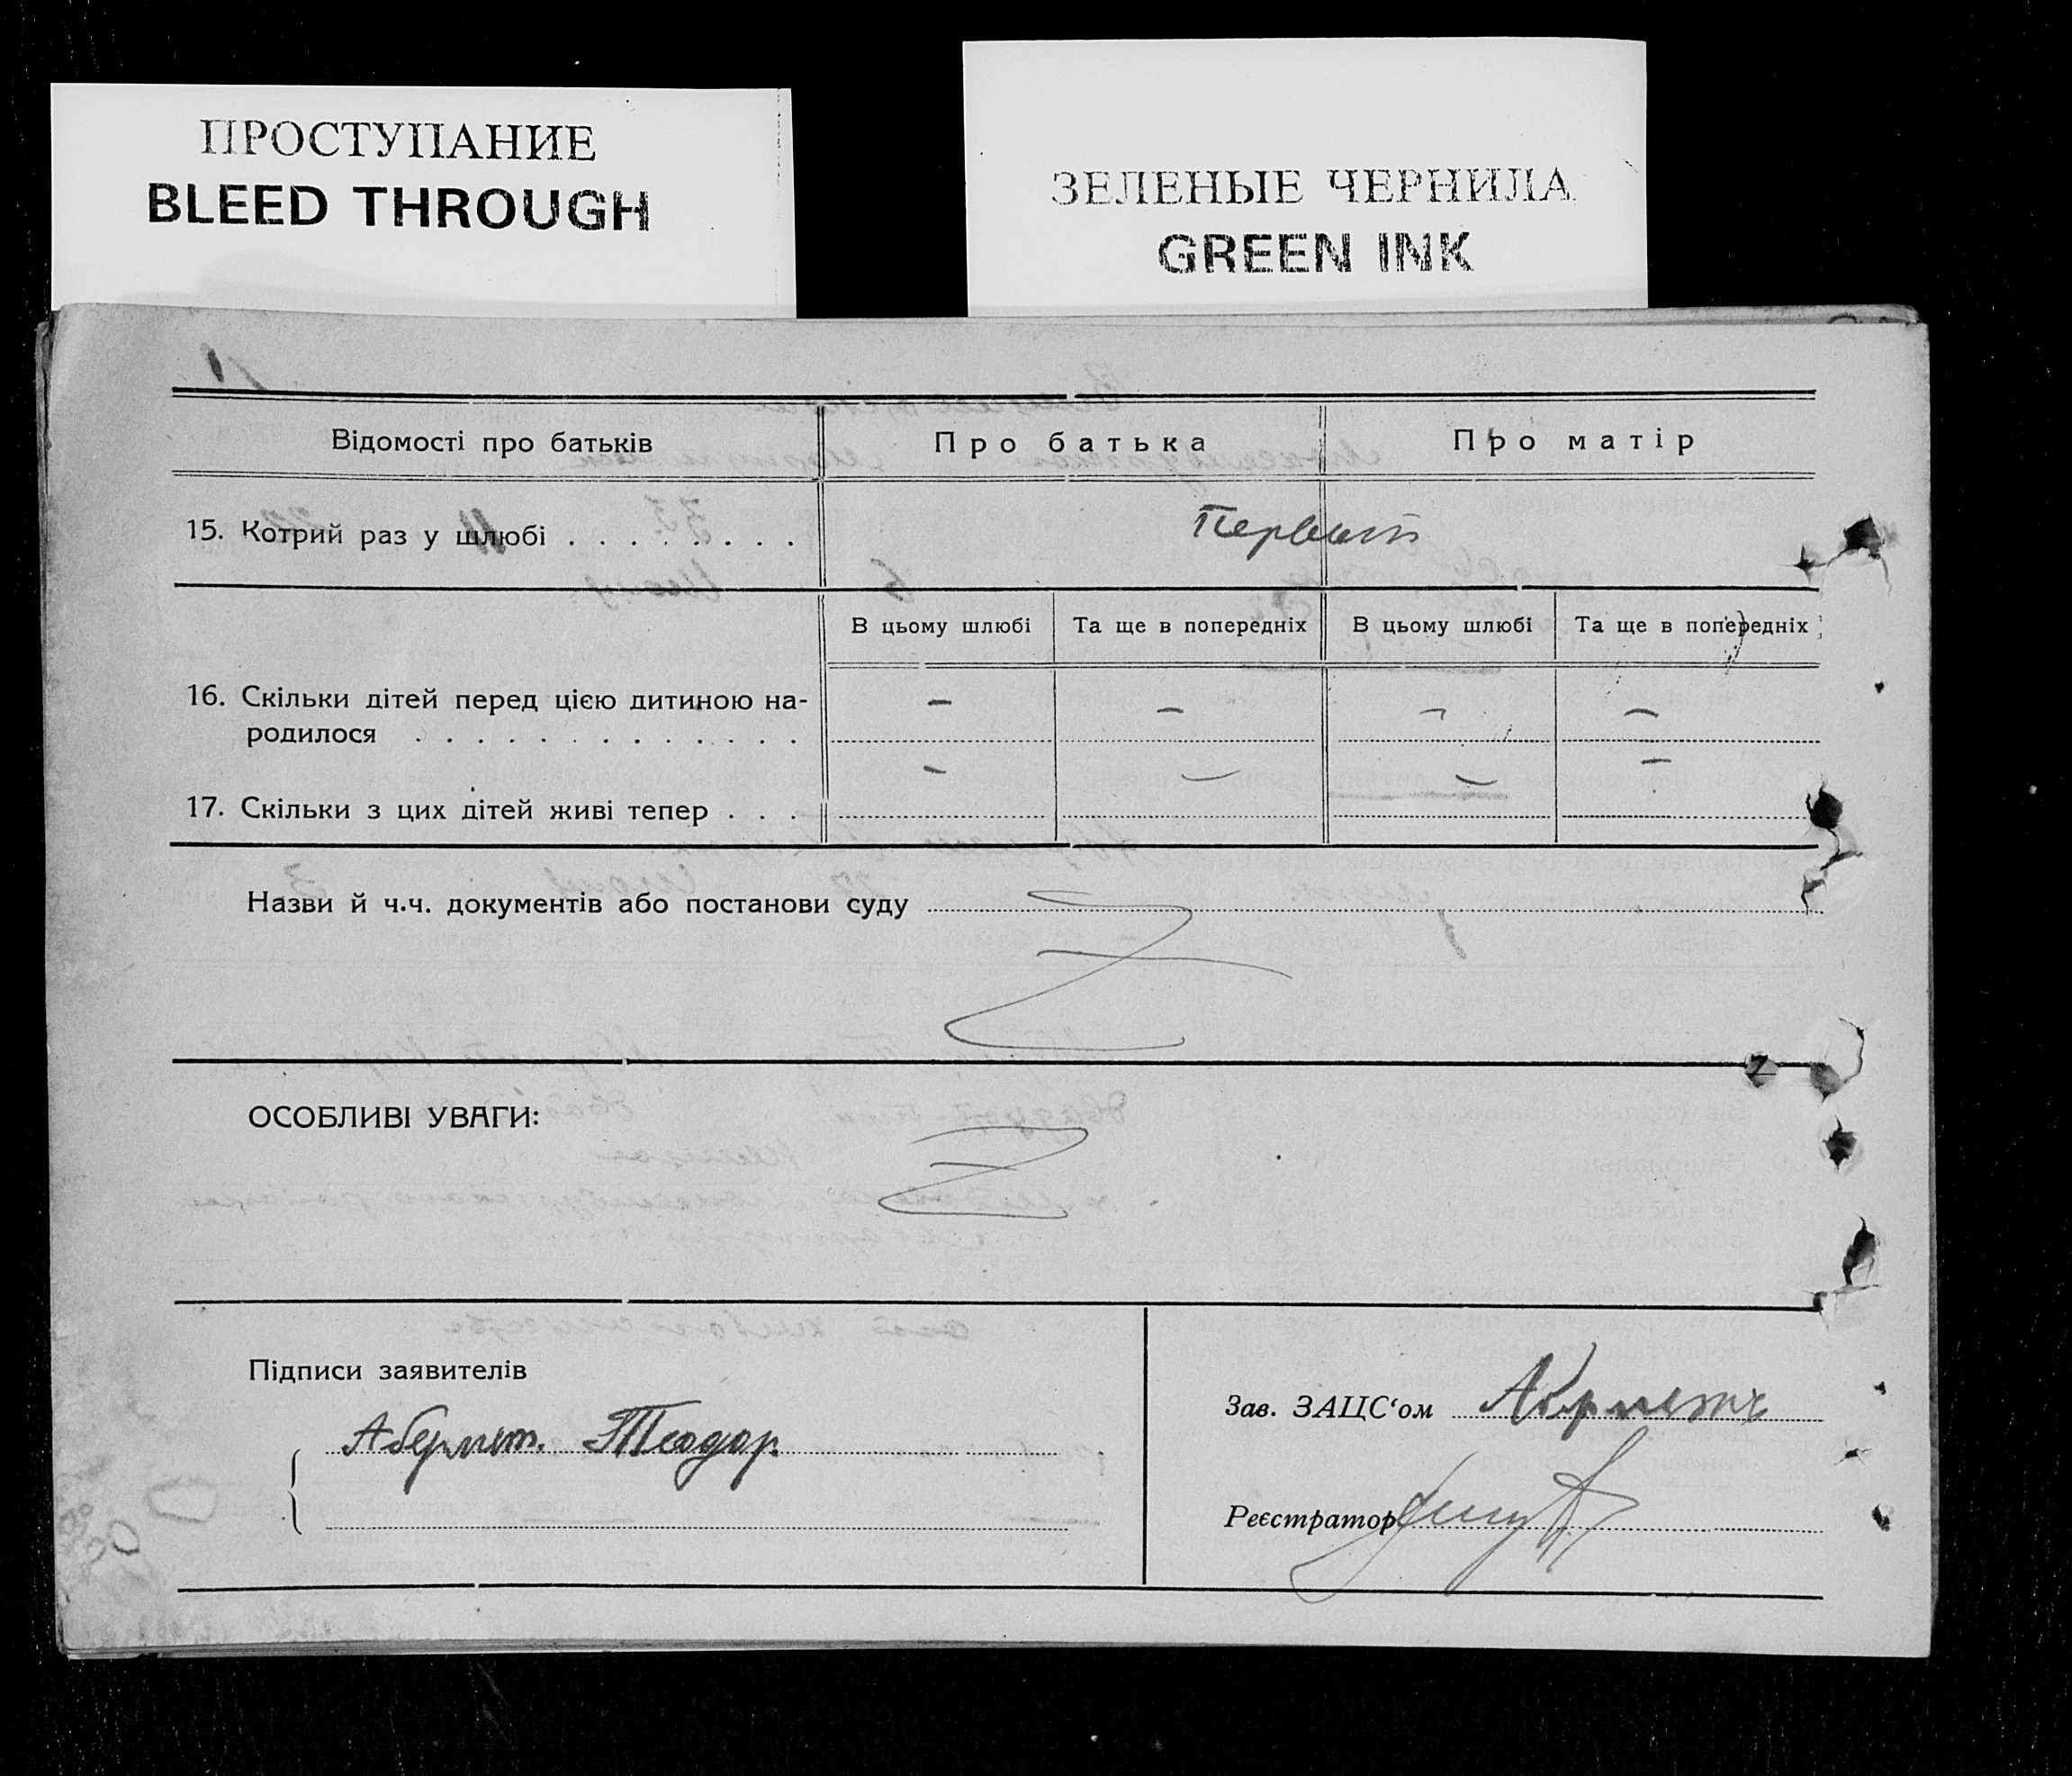 ПРОСТУПАНИЕ
BLEED THROUGH
ЗЕЛЕНЫЕ ЧЕРНИЛА
GREEN INK
Відомості про батьків Про батька Про матір
15. Котрий раз у шлюбі . . . . . . . . Первый
В цьому шлюбі Та ще в попередніх В цьому шлюбі Та ще в попередніх
16. Скільки дітей перед цією дитиною на-
родилося . . . . . . . . . . . . . — — — —
17. Скільки з цих дітей живі тепер . . . — — — —
Назви й ч.ч. документів або постанови суду
ОСОБЛИВІ УВАГИ:
Підписи заявителів
Абермет. Теодор.
Зав. ЗАЦС‘ом
Реєстратор